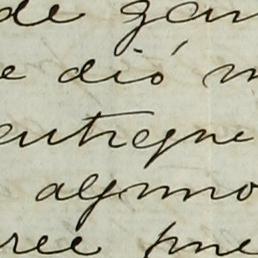 de gan
e dió m
entregue
alguno
ree pue